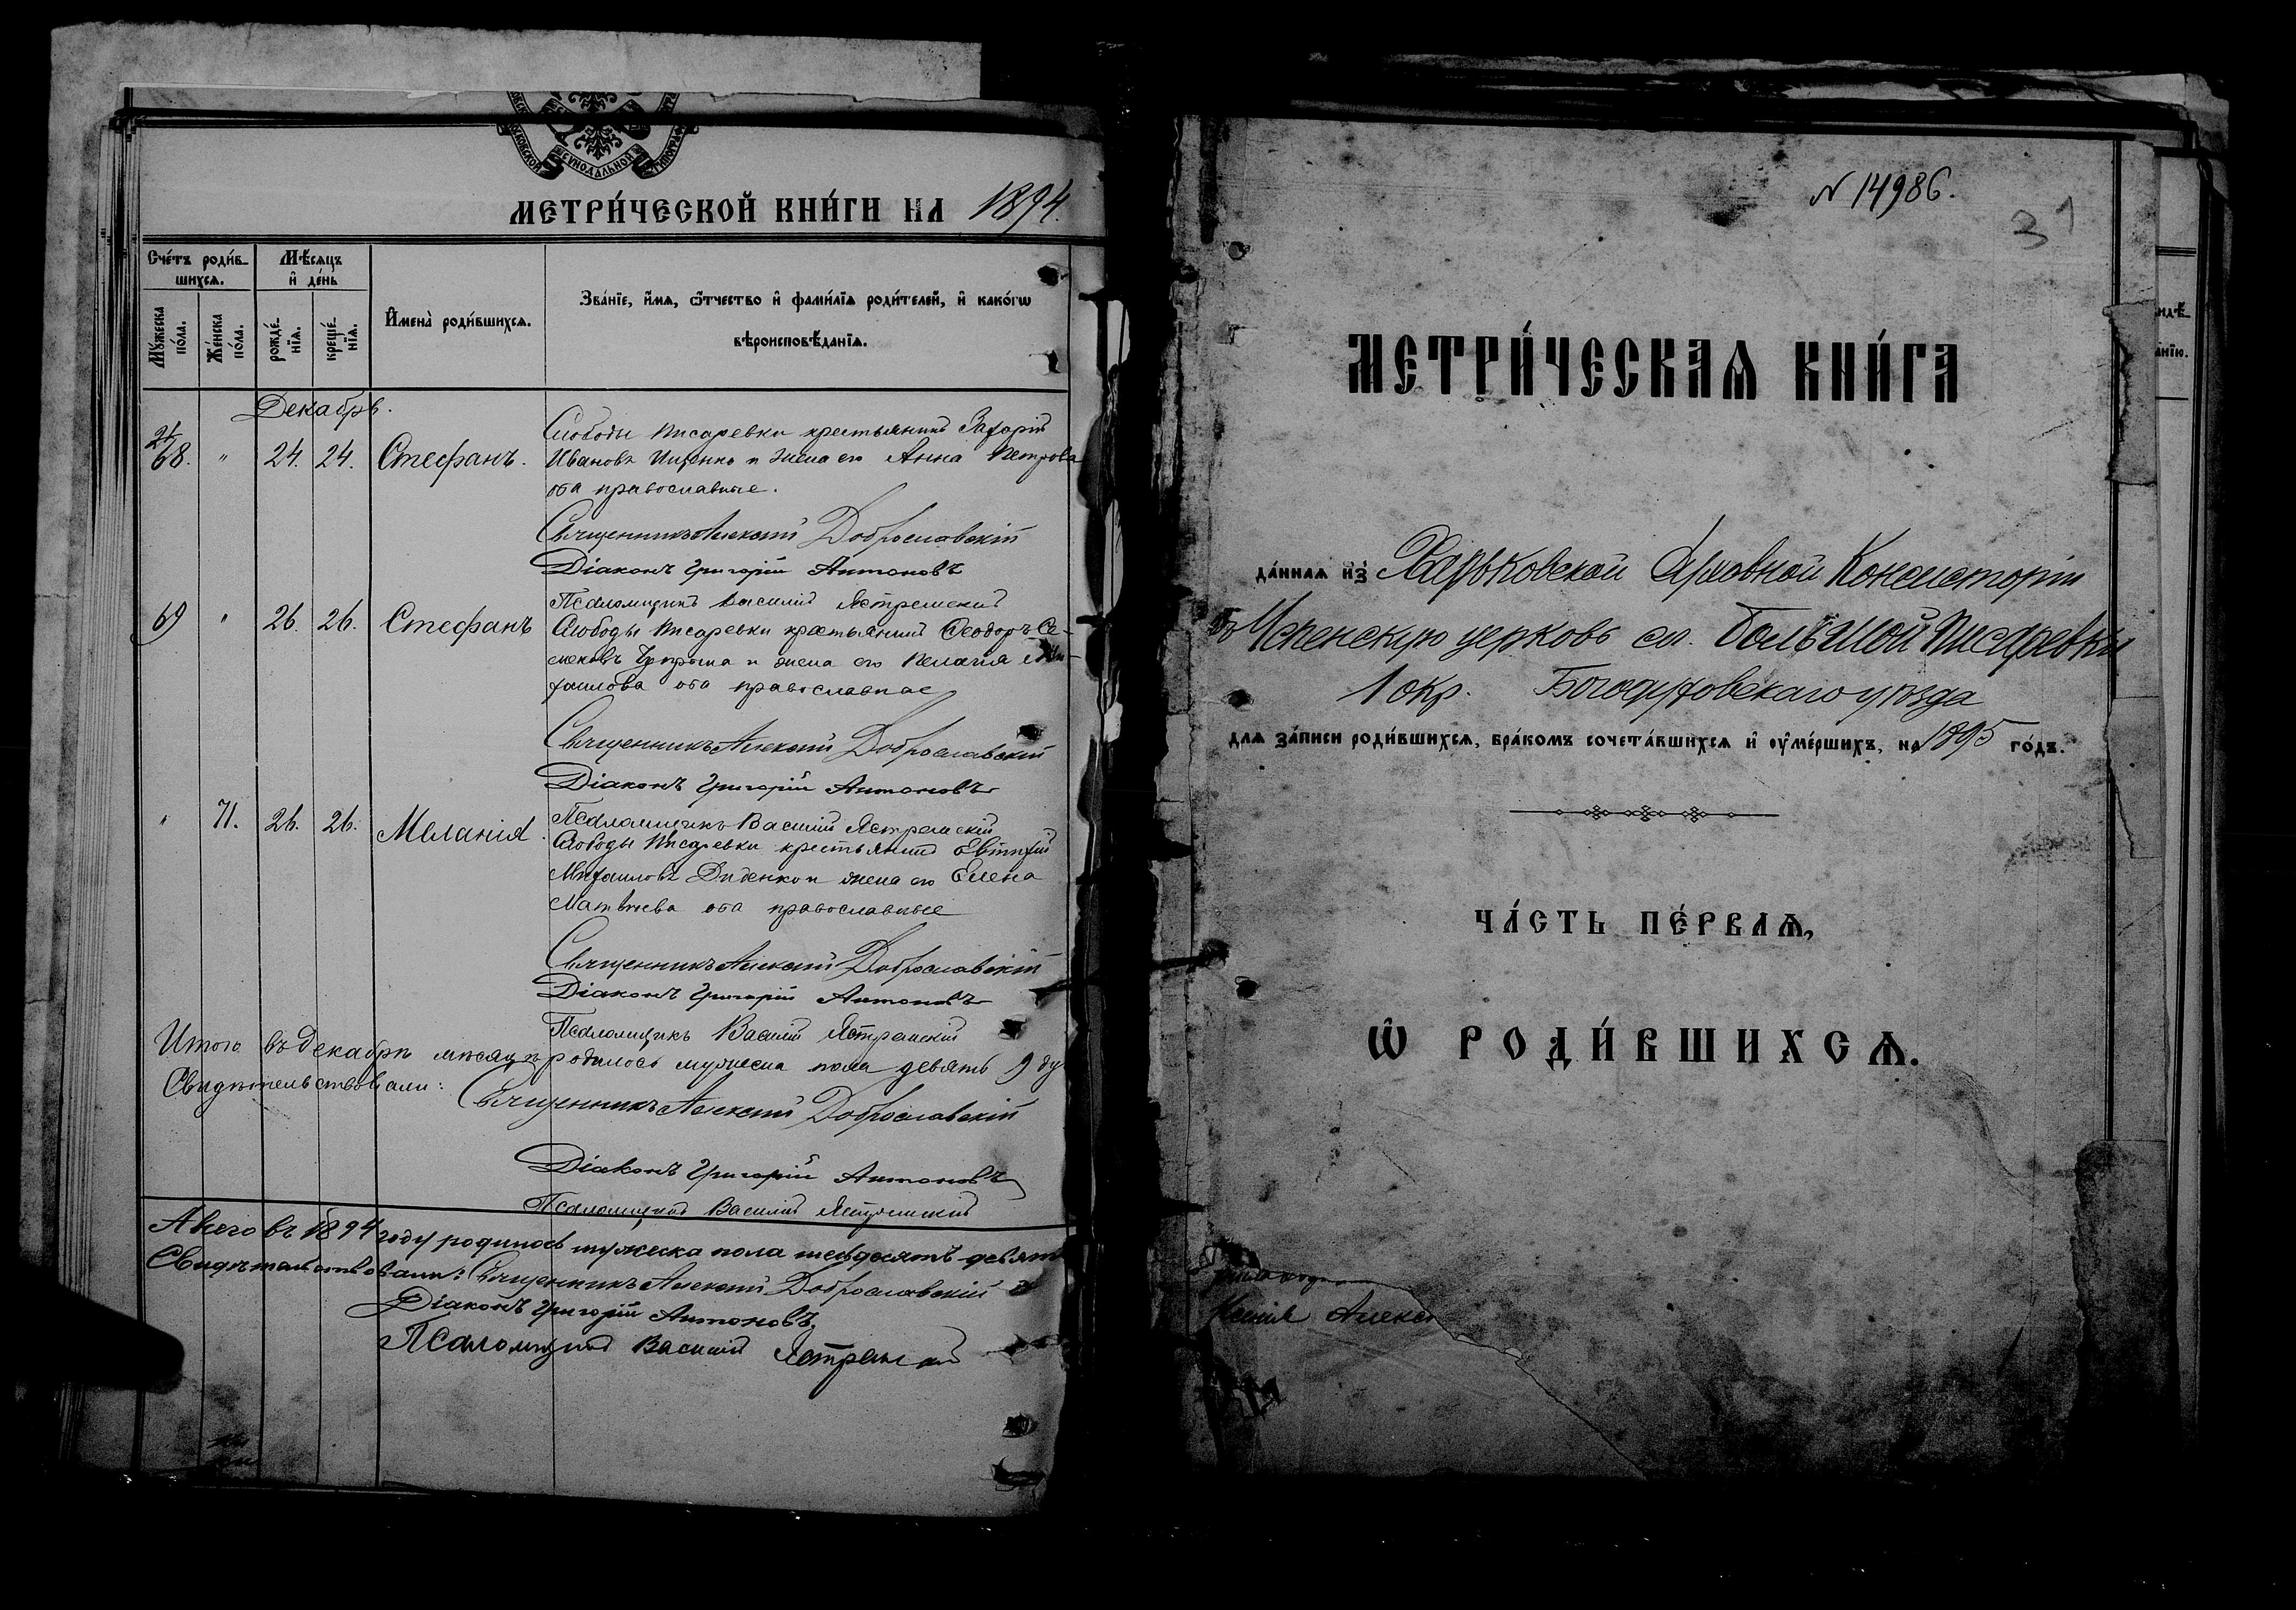 СѴНОДАЛЬНОЙ
МЕТРИ́ЧЕСКОЙ КНИ́ГИ НА 1894.
Сче́тъ роди́в-
шихсѧ.
Мѣ́сѧцъ
и҆ де́нь
Му́жеска
по́ла.
Же́нска
по́ла.
рожде́-
нїѧ.
креще́-
нїѧ.
И҆мена̀ роди́вшихсѧ.
Зва́нїе, и҆́мѧ, ѻ҆́тчество и҆ фами́лїѧ роди́телей, и҆ како́гѡ
вѣроисповѣ́данїѧ.
Декабрь.
68. " 24. 24. Стефанъ.
Слободы Писаревки крестьянинъ Захарій
Ивановъ Ищенко и жена его Анна Петрова
оба православные.
Священникъ Алексій Доброславскій
Діаконъ Григорій Антоновъ
Псаломщикъ Василій Ястремскій
69 " 26. 26. Стефанъ
Слободы Писаревки крестьянинъ Ѳеодоръ Се-
меновъ и жена его Пелагія Ми-
хаилова оба православные
Священникъ Алексій Доброславскій
Діаконъ Григорій Антоновъ
Псаломщикъ Василій Ястремскій
" 71. 26. 26. Меланія.
Слободы Писаревки крестьянинъ Евтихій
Михаиловъ Диденко и жена его Елена
Матвѣева оба православные
Священникъ Алексій Доброславскій
Діаконъ Григорій Антоновъ
Псаломщикъ Василій Ястремскій
Итого въ декабрѣ мѣсяцѣ родилось мужеска пола девять 9 ду
Свидѣтельствовали: Священникъ Алексій Доброславскій
Діаконъ Григорій Антоновъ
Псаломщикъ Василій Ястремскій
А всего въ 1894 году родилось мужеска пола шесдесятъ девять
Свидѣтельствовали: Священникъ Алексій Доброславскій
Діаконъ Григорій Антоновъ
Псаломщикъ Василій Ястремскій
N 14986.
31
МЕТРИ́ЧЕСКАѦ КНИ́ГА
да́ннаѧ и҆з̾ Харьковской Духовной Консисторіи
въ Успенскую церковь сл. Большой Писаревки
1 окр. Богодуховскаго уѣзда
длѧ за́писи роди́вшихсѧ, бра́комъ сочета́вшихсѧ и҆ ᲂу҆ме́ршихъ, на 1895 го́дъ.
ЧА́СТЬ ПЕ́РВАѦ,
Ѡ҆ РОДИ́ВШИХСѦ.
Алекс